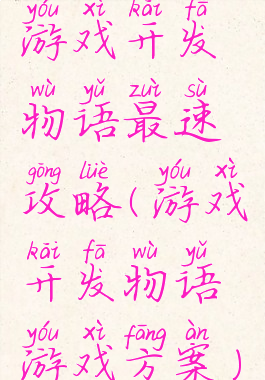 yóu xì kāi fā
游戏开发
wù yǔ zuì sù
物语最速
gōng lüè yóu xì
攻略(游戏
kāi fā wù yǔ
开发物语
yóu xì fāng àn
游戏方案)